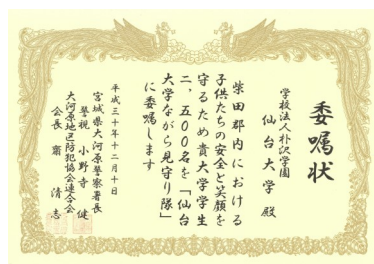 委嘱状
学校法人朴沢学園
仙台大学 殿
柴田郡内における
子供たちの安全と笑顔を
守るため貴大学学生
二、五００名を「仙台
大学ながら見守り隊」
に委嘱します
平成三十年十二月十日
宮城県大河原警察署長
警視 小野寺 健
大河原地区防犯協会連合会
会長 齋 清志